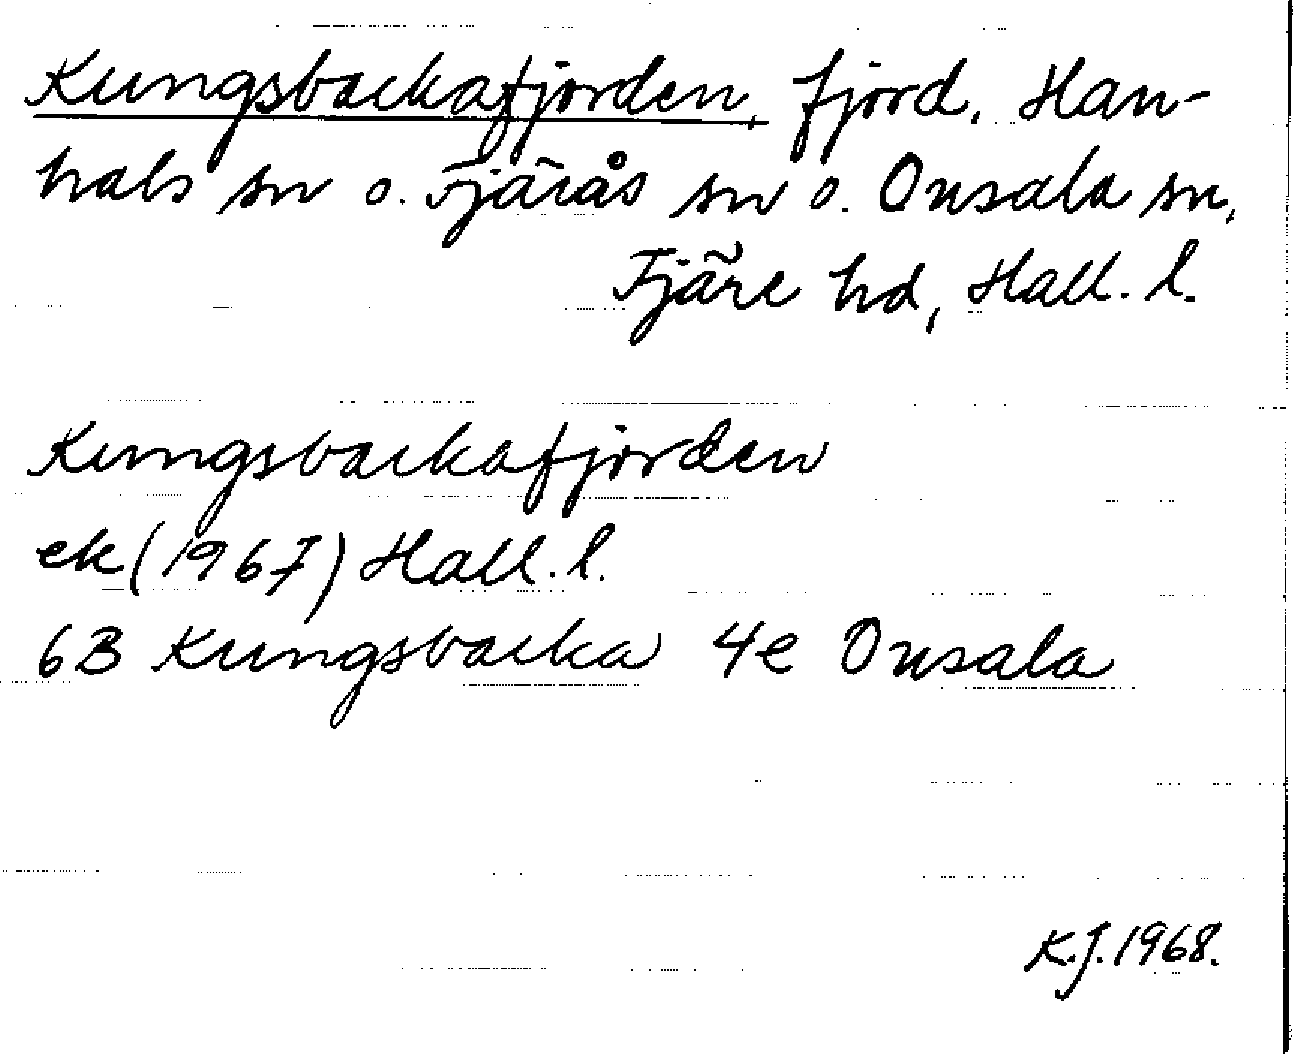 Kungsbackafjorden, fjord, Han-
hals sn o. Fjärås sn o. Onsala sn,
Fjäre hd, Hall. l.
Kungsbackafjorden
ek (1967) Hall. l.
6B Kungsbacka 4e Onsala
K.J. 1968.